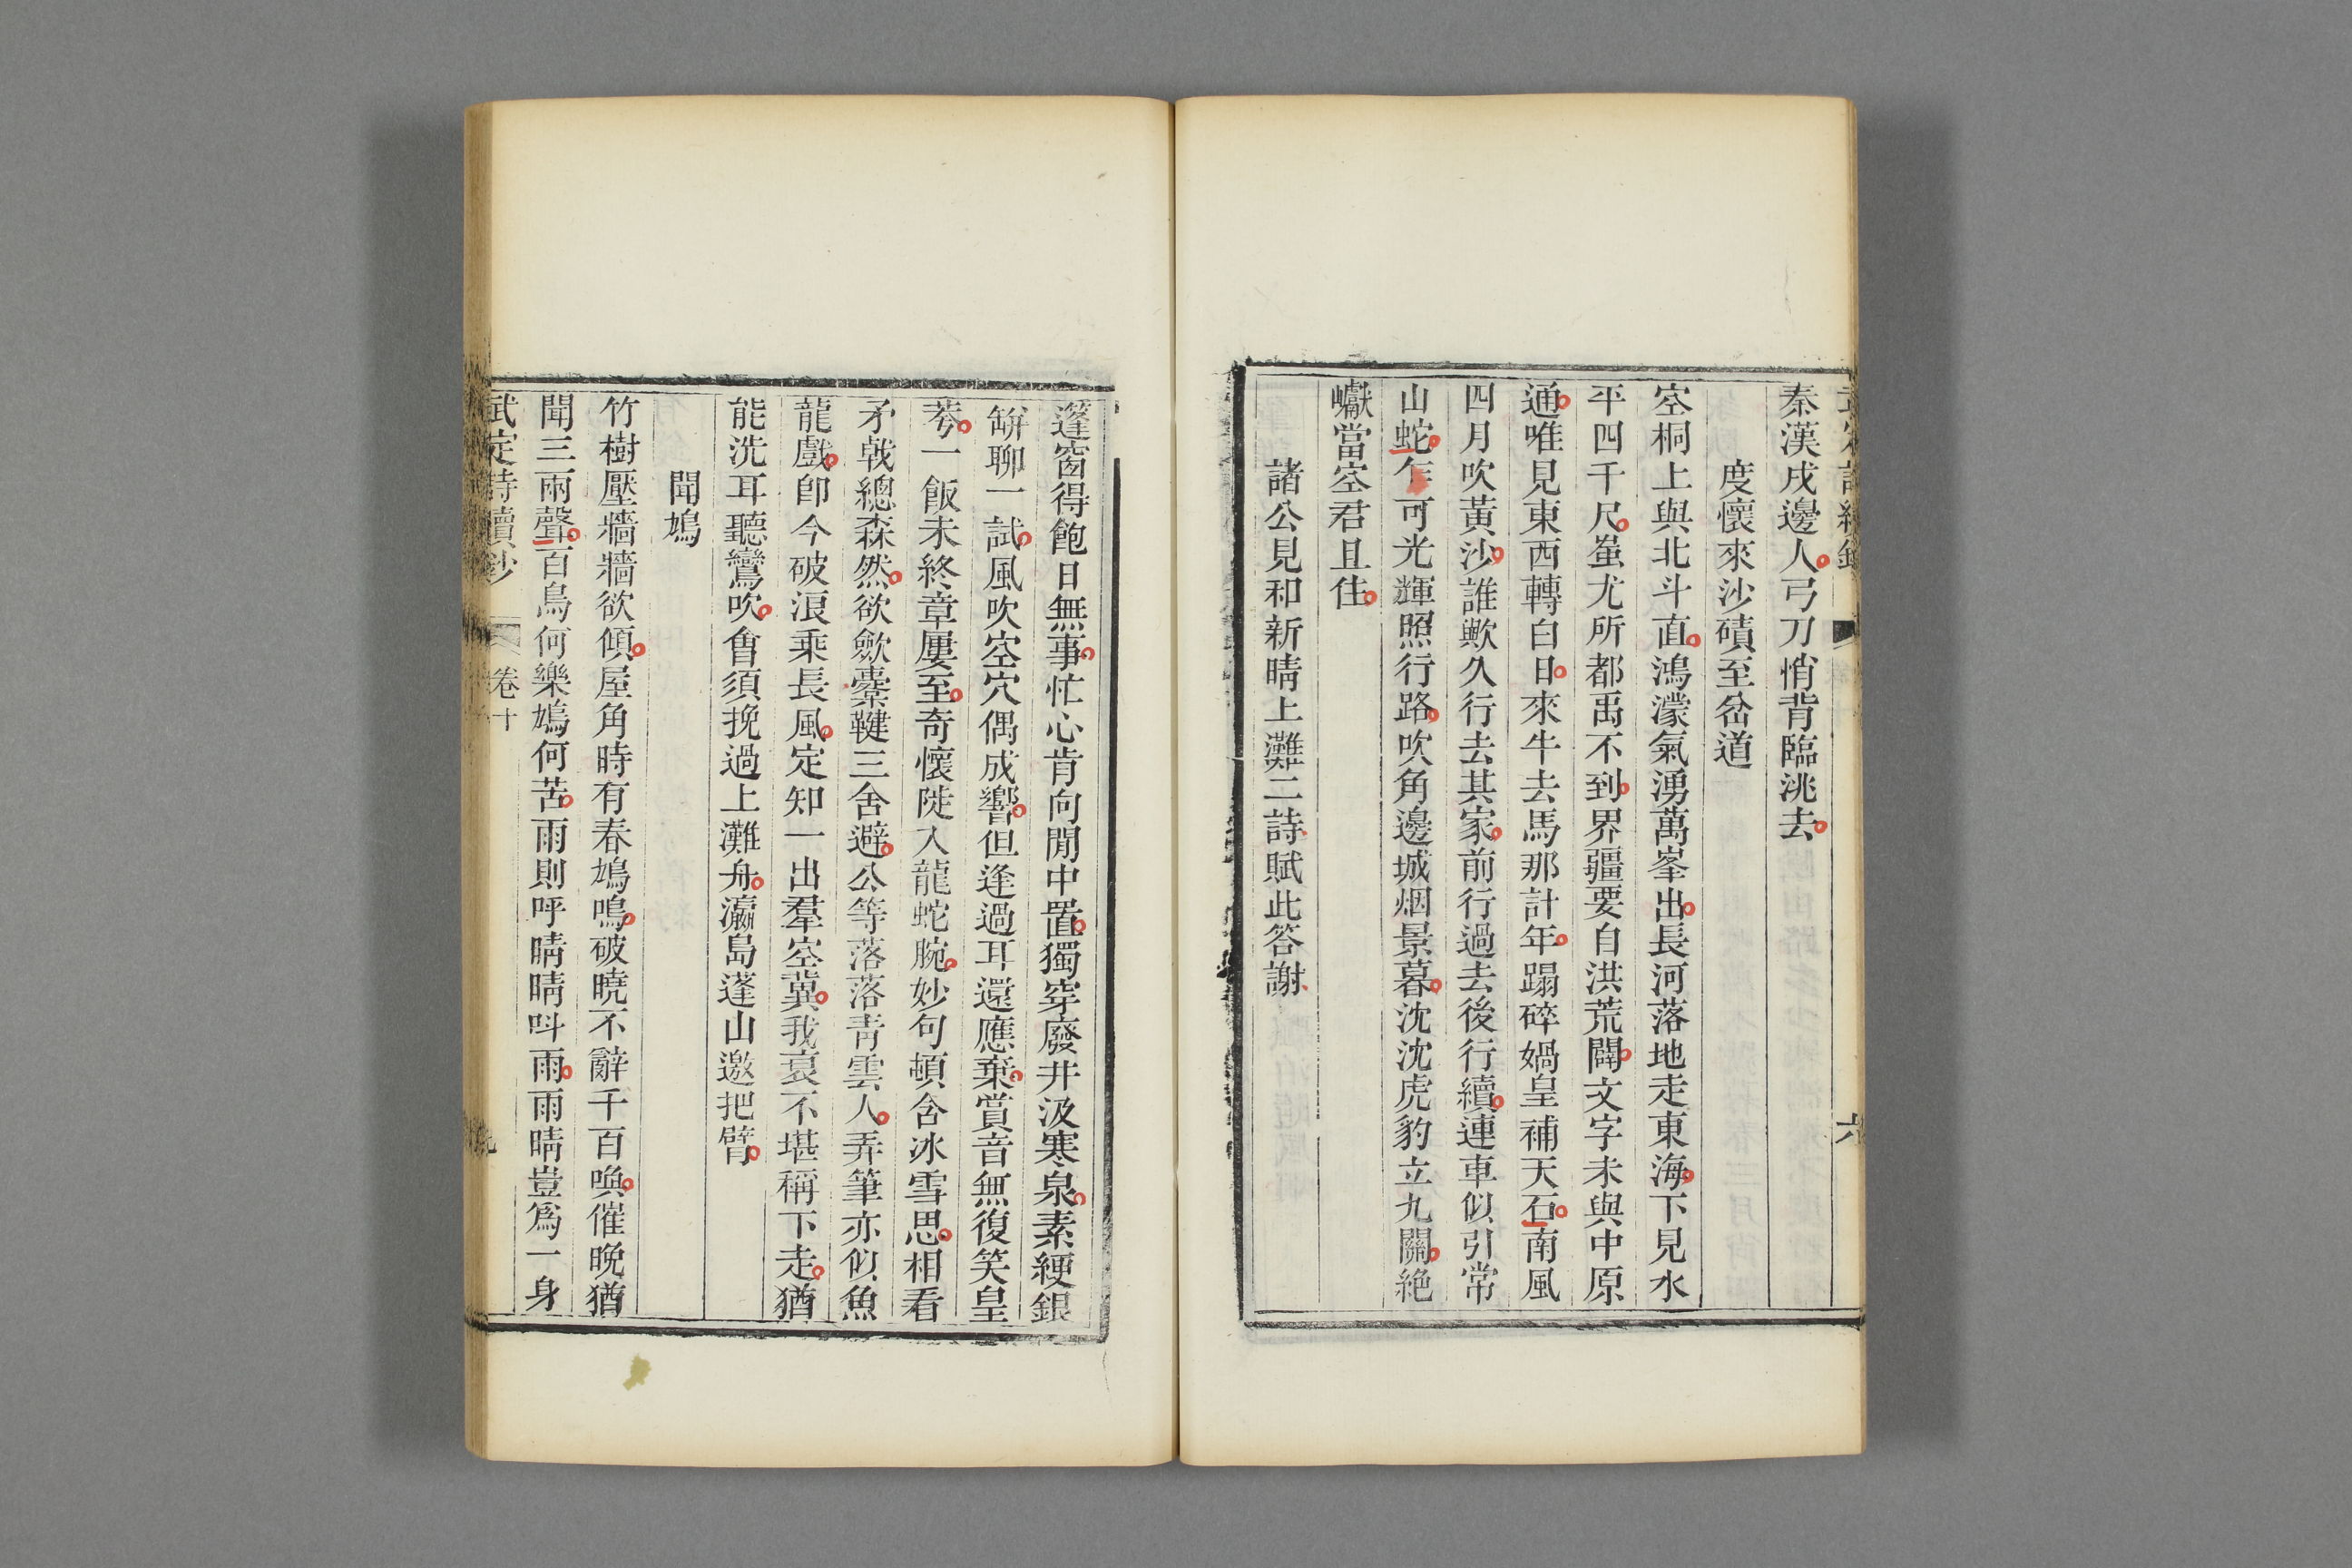 秦漢戍邊人弓刀悄背臨洮去
度懷來沙磧至岔道
空桐上與北斗直鴻濛氣湧萬峯出長河落地走東海下見水
平四千尺蚩尤所都禹不到界疆要自洪荒闢文字未與中原
通唯見東西轉白日來牛去馬那計年蹋碎媧皇補天石南風
四月吹黃沙誰歟久行去其家前行過去後行續連車似引常
山蛇乍可光輝照行路吹角邊城烟景暮沈沈虎豹立九關絶
巘當空君且住
諸公見和新晴上灘二詩賦此答謝
篷窗得飽日無事忙心肯向閒中置獨穿廢井汲寒泉素綆銀
缾聊一試風吹空穴偶成響但逢過耳還應棄賞音無復笑皇
荂一飯未終章屢至奇懷陡入龍蛇腕妙句頓含冰雪思相看
矛戟總森然欲歛櫜鞬三舍避公等落落青雲人弄筆亦似魚
龍戲卽今破浪乘長風定知一出羣空冀我衰不堪稱下走猶
能洗耳聽鸞吹會須挽過上灘舟瀛島蓬山邀把臂
聞鳩
竹樹壓牆牆欲傾屋角時有春鳩鳴破曉不辭千百喚催晚猶
聞三兩聲百鳥何樂鳩何苦雨則呼晴晴呌雨雨晴豈爲一身
武定詩續鈔 卷十